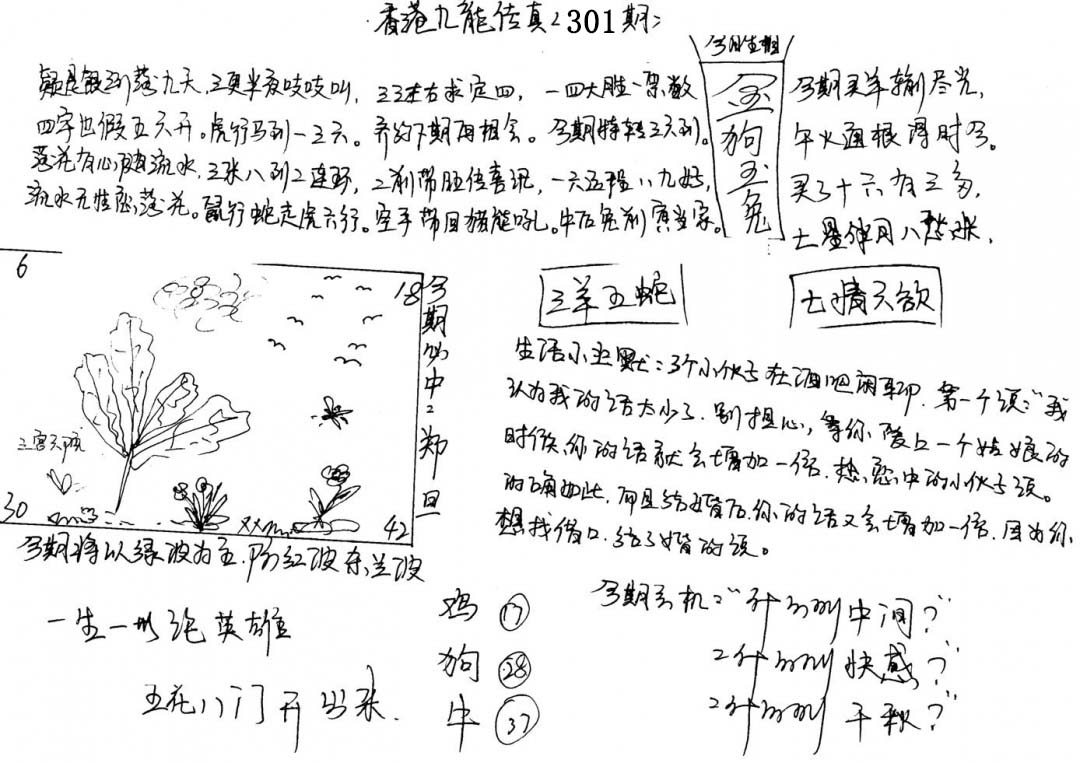 香港九龍传真〈301期〉
疑是银河落九天，三更半夜吱吱叫，三三左右求定四，一四大胜一架数
四字也假五六开。虎行马到一三六。齐约下期再相会。今期特转三六到。
落花有心随流水，三张八到二连环，二前带胆传喜讯，一六五程八九好，
流水无情恋落花。鼠行蛇走虎六行。空手带回猪能吼。牛后兔前寅当家。
今日生相
金狗玉兔
今期买羊输尽光，
午火通根得时令。
买了十六有三多，
七星伴月八登来，
6
18
今期必中：郑旦
三宫六院
30
42
今期将以绿波为主，防红波杀兰波
三羊五蛇
七情六欲
生活小幽默：3个小伙子在酒吧闲聊，第一个说：“我
认为我的话太少了，别担心，等你爱上一个姑娘的
时候，你的话就会增加一倍，热恋中的小伙子说。
的确如此，而且结婚后，你的话又会增加一倍，因为你
想找借口，结了婚的说。
一生一世论英雄
五花八门开出来．
鸡 17
狗 28
牛 37
今期玄机：“
中间？”
快感？”
千秋？”